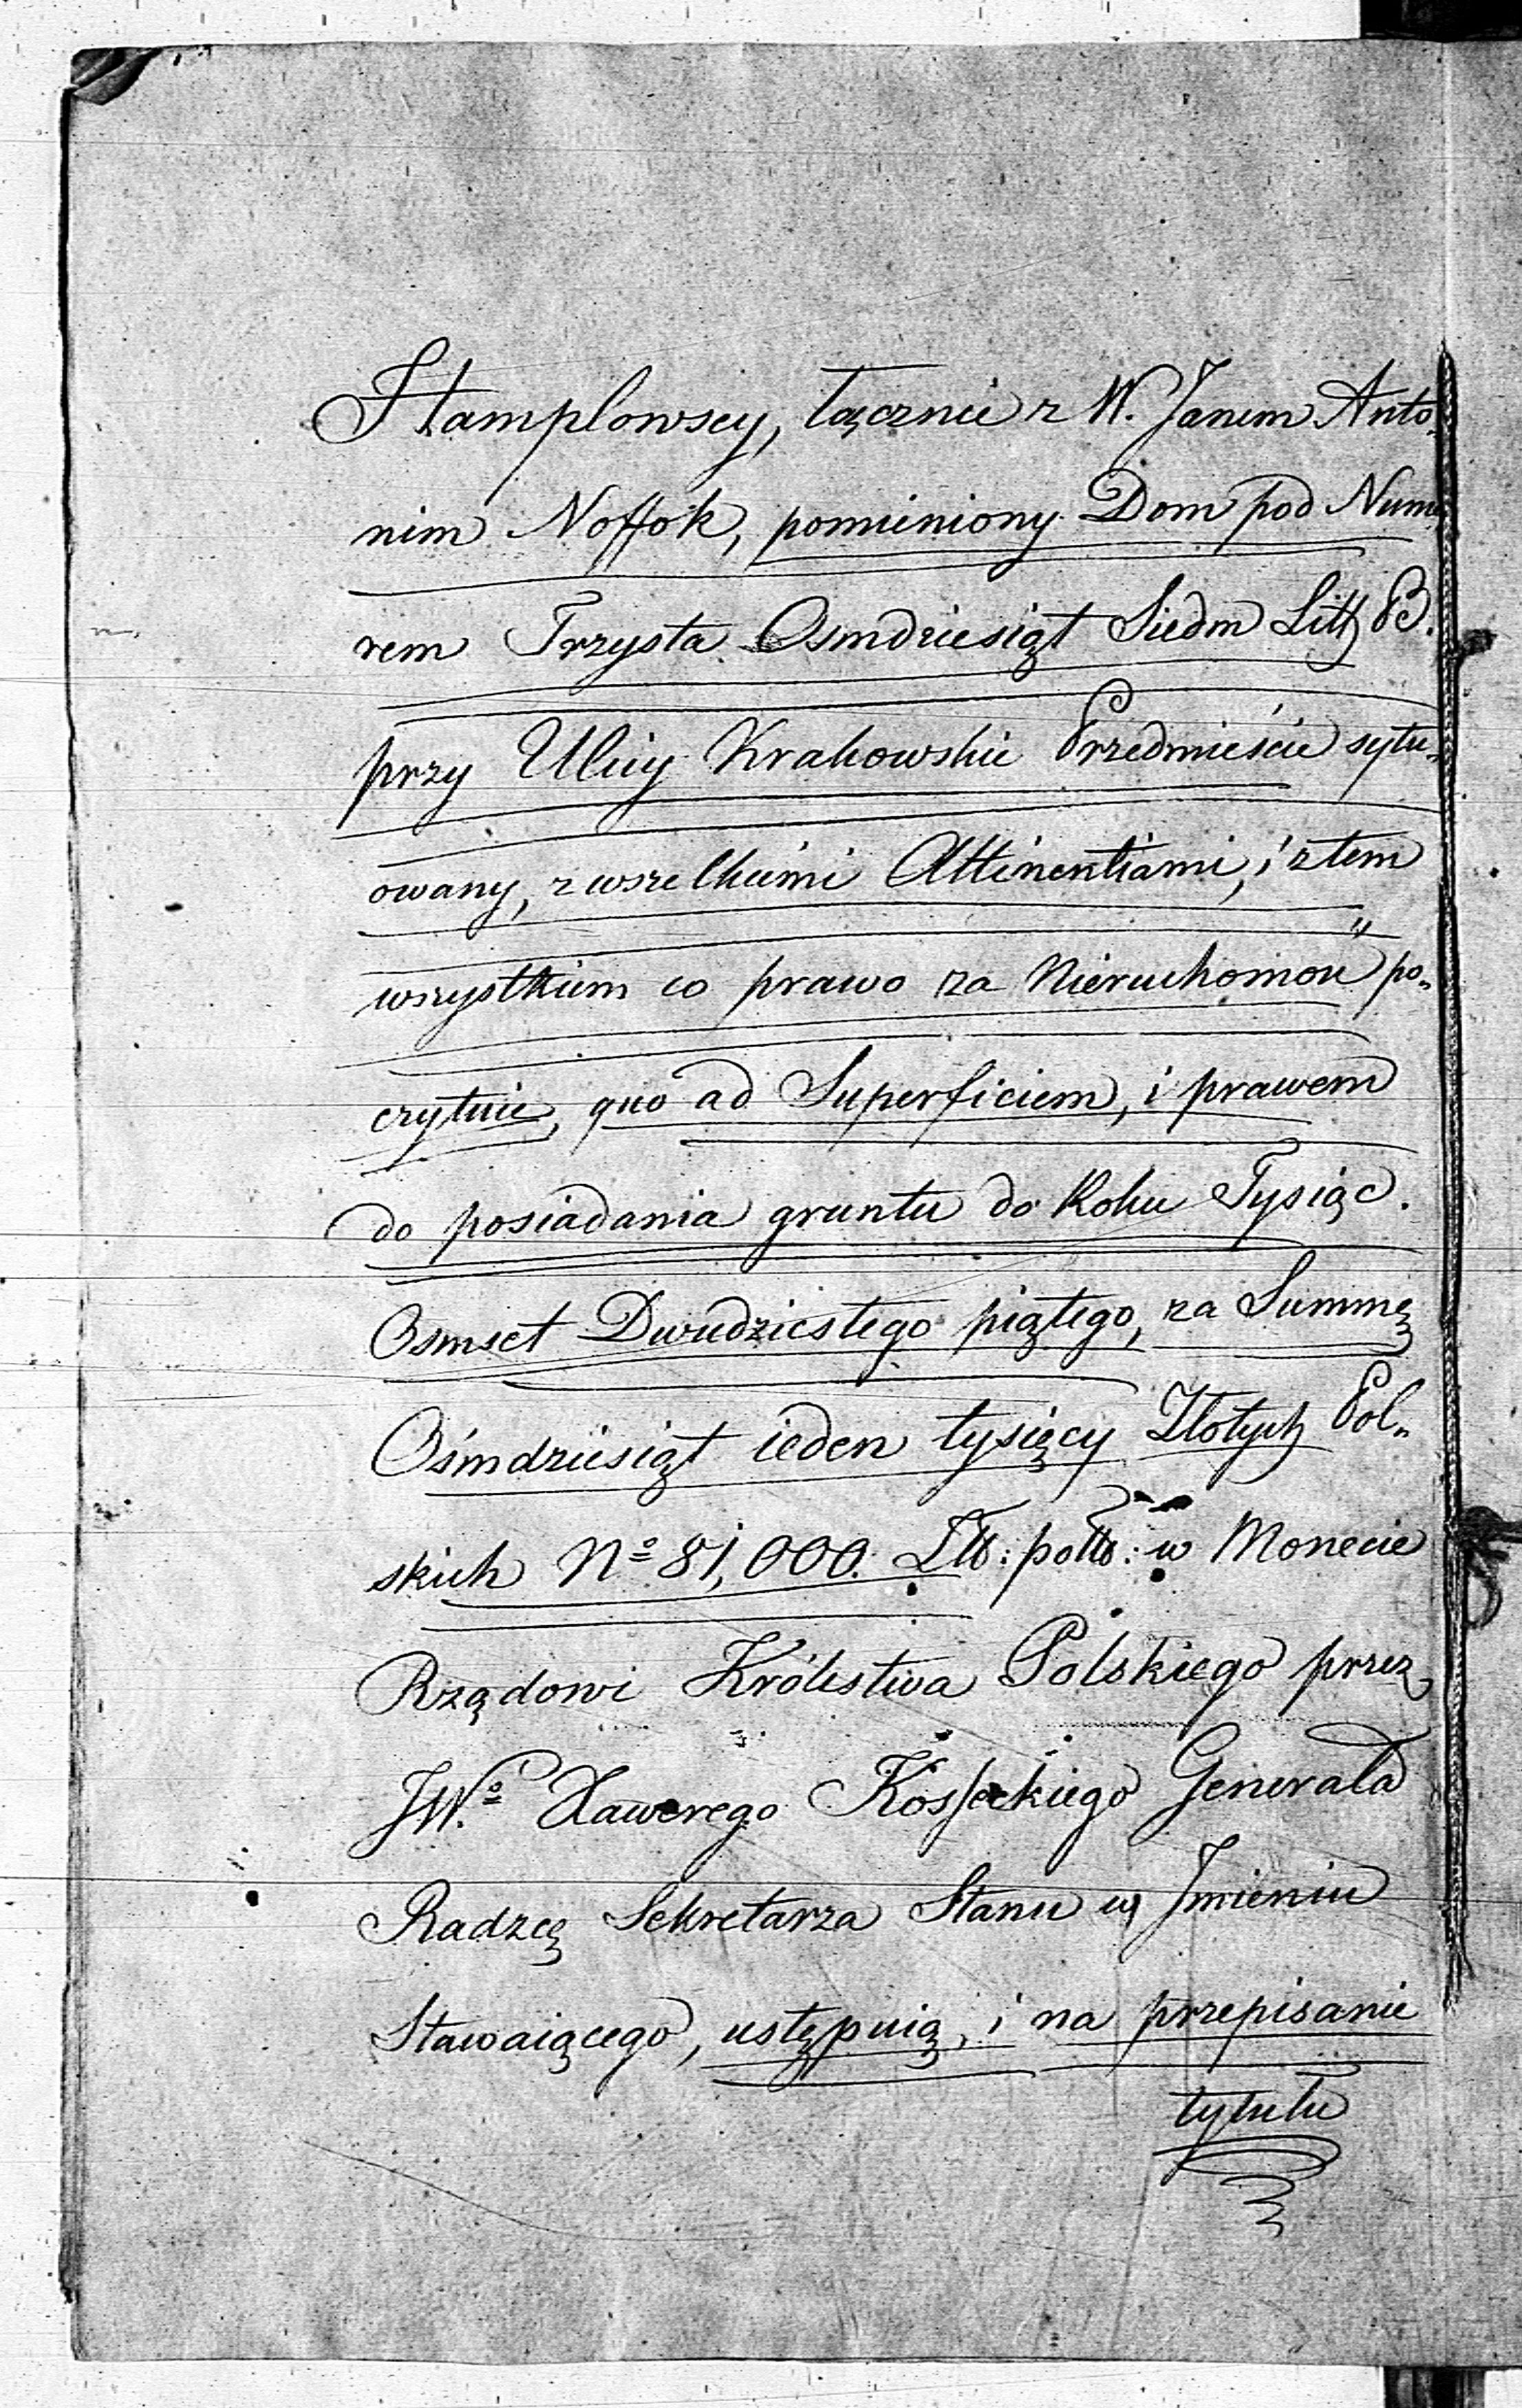 Stamplowscy, łącznie z W. Janem Anto„
nim Noffok, pomieniony Dom pod Nume
rem Trzysta Osmdziesiąt Siedm Litt B.
przy Ulicy Krakowskie Przedmieście sytu„
owany, z wszelkiemi Attinentiami, i z tem
wszystkiem co prawo za Nieruchomość po„
czytuie, quo ad Superficiem, i prawem
do posiadania gruntu do Roku Tysiąc.
Osmset Dwudziestego piątego, za Summę
Ośmdziesiąt ieden tysięcy Złotych Pol„
skich No 81,000. Zł: pol: w Monecie
Rządowi Królestwa Polskiego przez
JW.o Xawerego Kosseckiego Generała
Radzcę Sekretarza Stanu w Jmieniu
Stawaiącego, ustępuią, i na przepisanie
tytułu